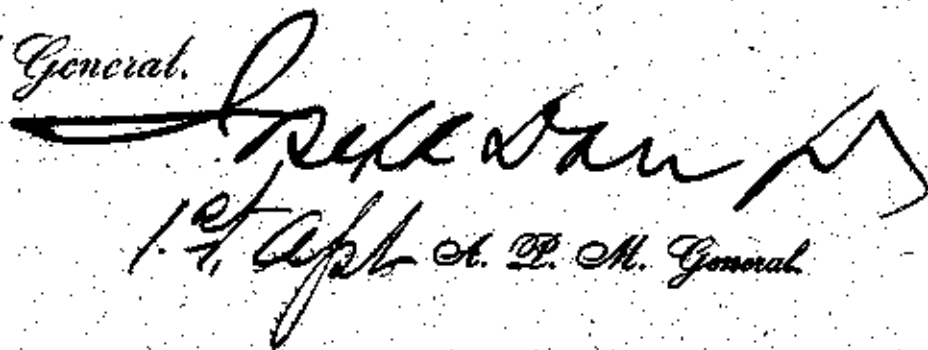 General.
Joseph
1st Asst A. P. M. General.